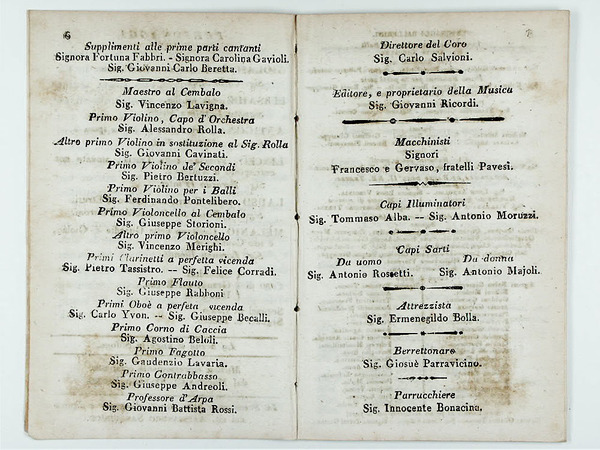 6
Supplimenti alle prime parti cantanti
Signora Fortuna Fabbri. - Signora Carolina Gavioli.
Sig. Giovanni Carlo Beretta.
Maestro al Cembalo
Sig. Vincenzo Lavigna.
Primo Violino, Capo d'Orchestra
Sig. Alessandro Rolla.
Altro primo Violino in sostituzione al Sig. Rolla
Sig. Giovanni Cavinati.
Primo Violino de' Secondi
Sig. Pietro Bertuzzi.
Primo Violino per i Balli
Sig. Ferdinando Pontelibero.
Primo Violoncello al Cembalo
Sig. Giuseppe Storioni.
Altro primo Violoncello
Sig. Vincenzo Merighi.
Primi Clarinetti a perfetta vicenda
Sig. Pietro Tassistro. -- Sig. Felice Corradi.
Primo Flauto
Sig. Giuseppe Rabboni
Primi Oboè a perfeta vicenda
Sig. Carlo Yvon. -- Sig. Giuseppe Becalli.
Primo Corno di Caccia
Sig. Agostino Beloli.
Primo Fagotto
Sig. Gaudenzio Lavaria.
Primo Contrabbasso
Sig. Giuseppe Andreoli.
Professore d'Arpa
Sig. Giovanni Battista Rossi.
Direttore del Coro
Sig. Carlo Salvioni.
Editore, e proprietario della Musica
Sig. Giovanni Ricordi.
Macchinisti
Signori
Francesco e Gervaso, fratelli Pavesi.
Capi Illuminatori
Sig. Tommaso Alba. -- Sig. Antonio Moruzzi.
Capi Sarti
Da uomo Da donna
Sig. Antonio Rossetti. Sig. Antonio Majoli.
Attrezzista
Sig. Ermenegildo Bolla.
Berrettonaro
Sig. Giosuè Parravicino.
Parrucchiere
Sig. Innocente Bonacina.